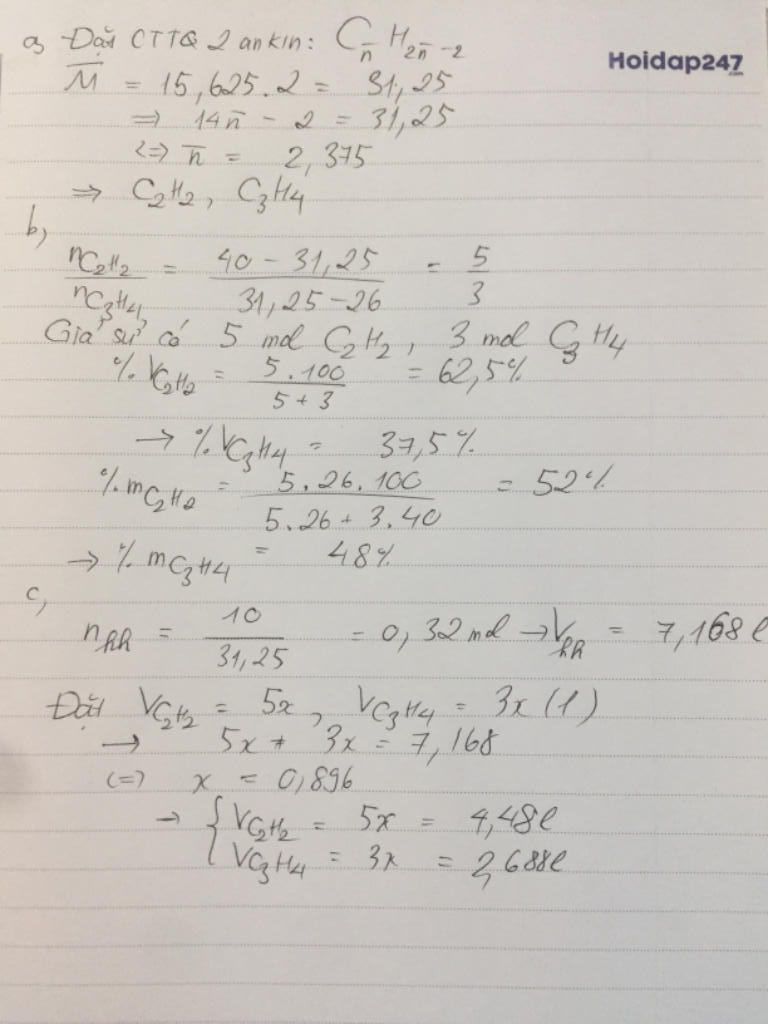 a, Đặt CTTQ 2 ankin: C_n̄ H_2n̄-2
Hoidap247
.com
M̄ = 15,625.2 = 31,25
=> 14n̄ - 2 = 31,25
<=> n̄ = 2,375
=> C2H2, C3H4
b,
nC2H2 / nC3H4 = (40 - 31,25) / (31,25 - 26) = 5/3
Giả sử có 5 mol C2H2, 3 mol C3H4
%VC2H2 = 5.100 / (5+3) = 62,5%
→ %VC3H4 = 37,5%
%mC2H2 = 5.26.100 / (5.26 + 3.40) = 52%
→ %mC3H4 = 48%
c,
nhh = 10 / 31,25 = 0,32 mol → Vhh = 7,168 l
Đặt VC2H2 = 5x, VC3H4 = 3x (l)
→ 5x + 3x = 7,168
<=> x = 0,896
→ { VC2H2 = 5x = 4,48l
VC3H4 = 3x = 2,688l